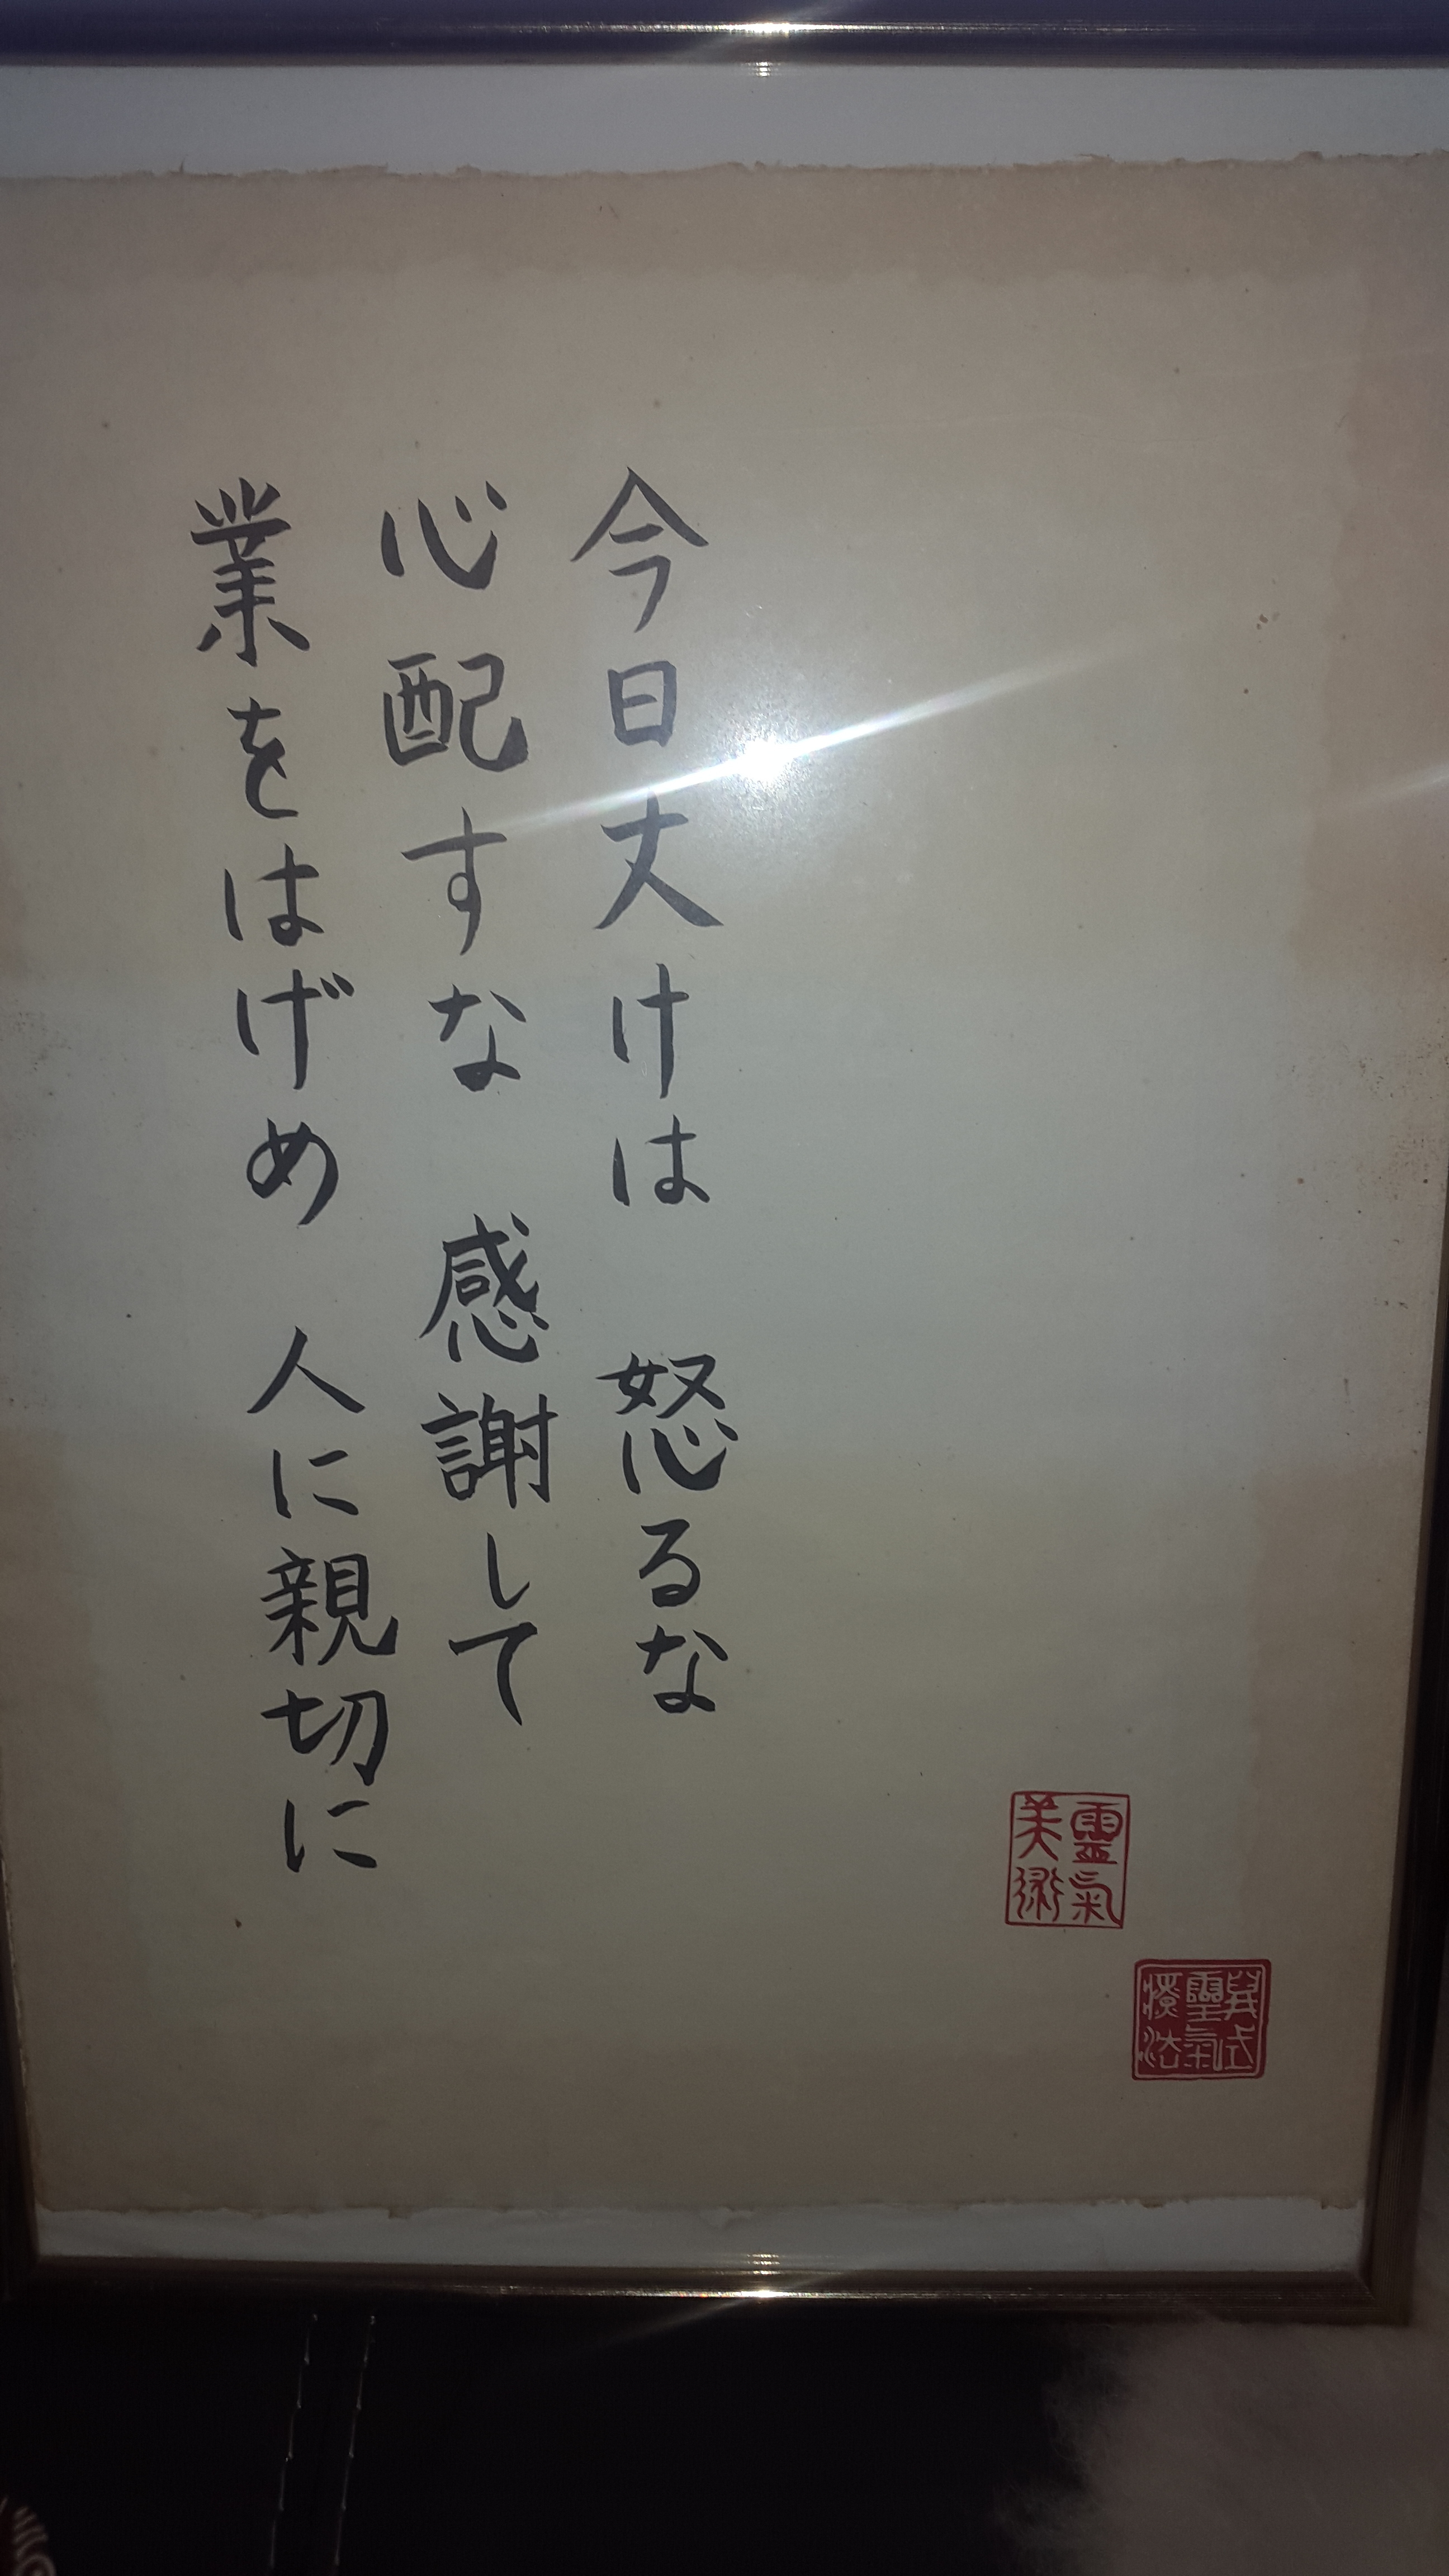 今日丈けは　怒るな
心配すな　感謝して
業をはげめ　人に親切に
靈氣
美術
靈氣
療法